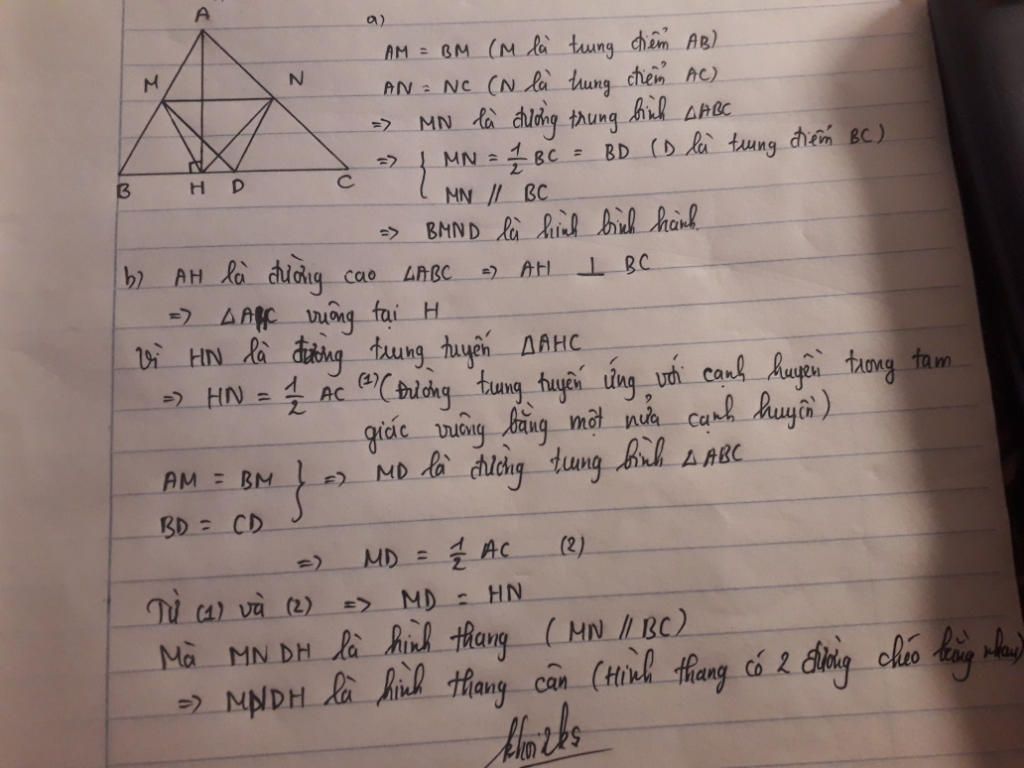 A
M
N
B
H
D
C
a)
AM = BM (M là trung điểm AB)
AN = NC (N là trung điểm AC)
=> MN là đường trung bình △ABC
=> { MN = 1/2 BC = BD (D là trung điểm BC)
MN // BC
=> BMND là hình bình hành.
b) AH là đường cao △ABC => AH ⊥ BC
=> △AHC vuông tại H
Vì HN là đường trung tuyến △AHC
=> HN = 1/2 AC (1) (Đường trung tuyến ứng với cạnh huyền trong tam
giác vuông bằng một nửa cạnh huyền)
AM = BM } => MD là đường trung bình △ABC
BD = CD
=> MD = 1/2 AC (2)
Từ (1) và (2) => MD = HN
Mà MNDH là hình thang (MN // BC)
=> MNDH là hình thang cân (Hình thang có 2 đường chéo bằng nhau)
khoi2ks